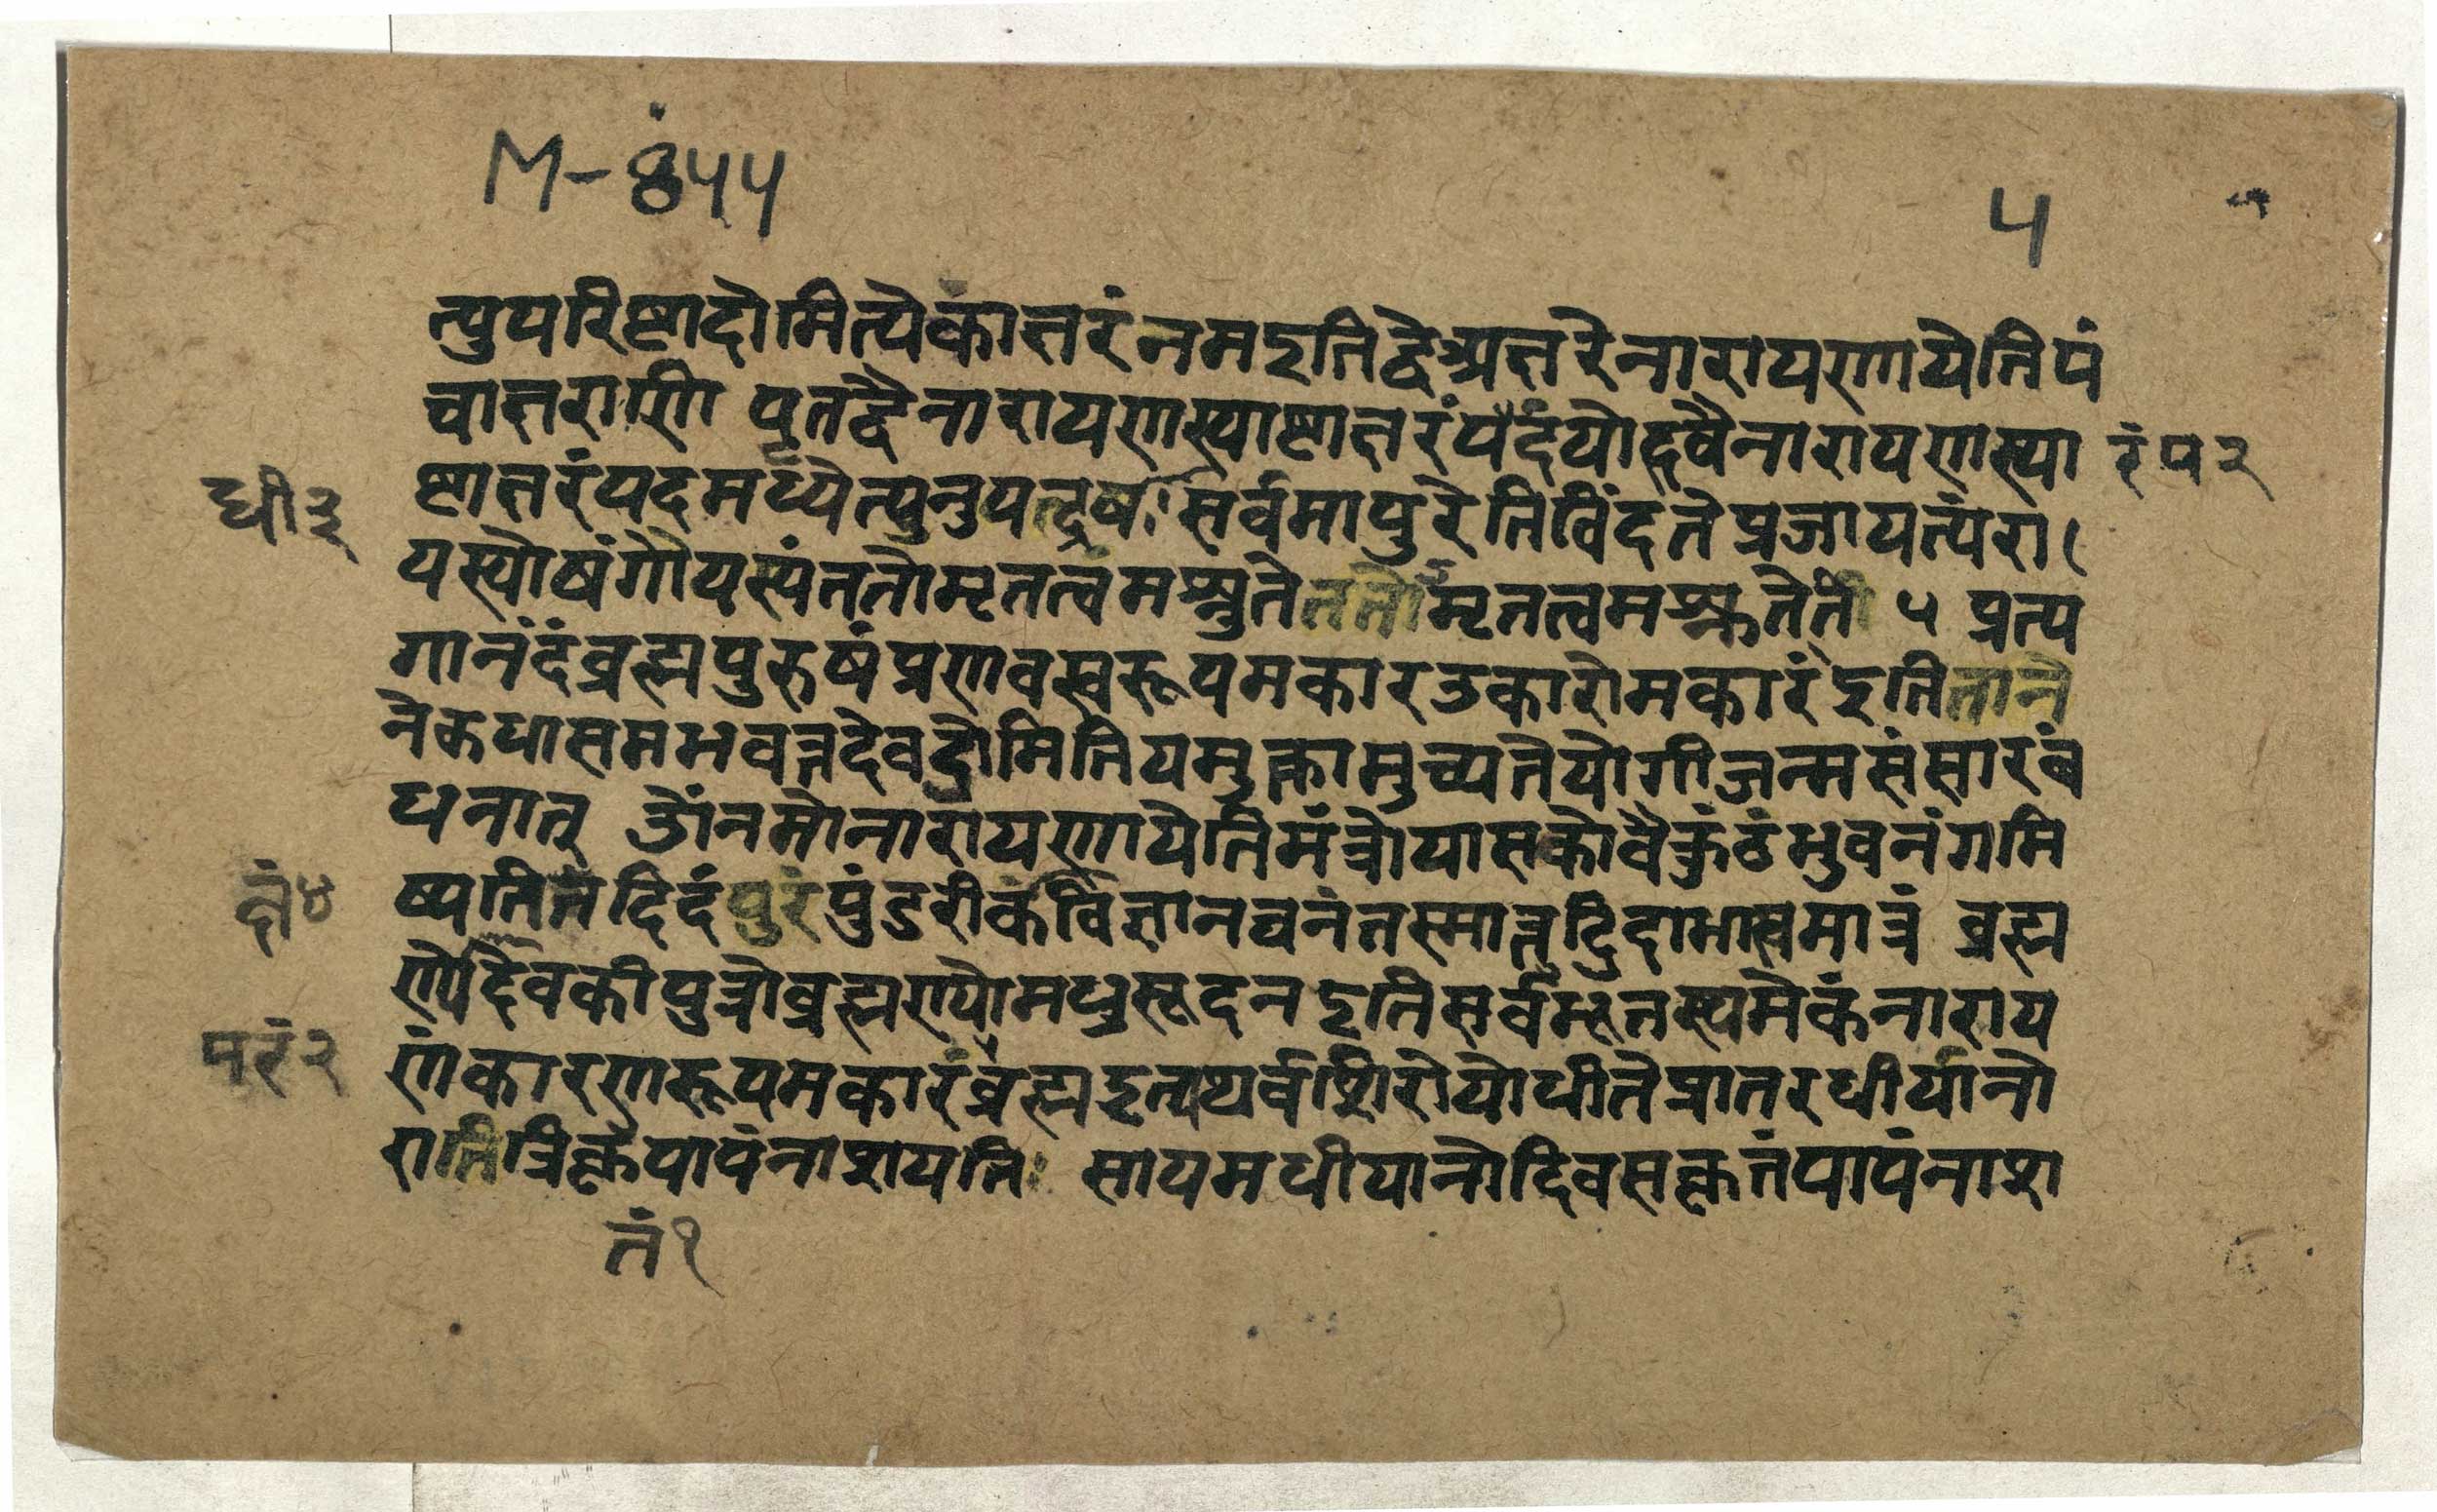 M-४५५
५
त्युपरिष्टादोमित्येकाक्षरंनमइतिद्वेअक्षरेनारायणायेतिपं
चाक्षराणी एतद्वैनारायणस्याष्टाक्षरंपदंयोहवैनारायणस्या रंप२
धी३ ष्टाक्षरंपदमध्येत्यनुपब्रुवः सर्वमायुरेतिविंदतेप्रजापत्यंरा
यस्पोषंगौपत्यंततोमृतत्वमश्नुतेततोमृतत्वमश्नुतेती ५ प्रत्य
गानंदंब्रह्मपुरुषंप्रणवस्वरूपमकारउकारोमकारंइतिताने
नेकधासमभवत्तदेवदोमितियमुक्त्वामुच्यतेयोगीजन्मसंसारबं
धनात् ॐनमोनारायणायेतिमंत्रोपासकोवैकुंठंभुवनंगमि
ष्यतितदिदंपुरंपुंडरीकंविज्ञानघनंतस्मात्तटिदाभास्वमात्रं ब्रह्म
ण्योदेवकीपुत्रोब्रह्मण्योमधुसूदनइतिसर्वभूतस्थमेकंनाराय
परं२ णंकारणरूपमकारंब्रह्मइत्यथर्वशिरोयोधीतेप्रातरधीयानो
रातित्रिकृपापंनाशयति सायमधीयानोदिवसकृतंपापंनाश
तं१